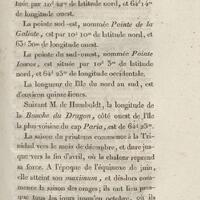 tuée par 10° 42ᵐ de latitude nord, et 64° 14ᵐ
de longitude ouest.
La pointe sud-est, nommée Pointe de la
Galiote, est par 10° 10ᵐ de latitude nord, et
63° 50ᵐ de longitude ouest.
La pointe du sud-ouest, nommée Pointe
Icacos, est située par 10° 3ᵐ de latitude
nord, et 64° 25ᵐ de longitude occidentale.
La longueur de l'île du nord au sud, est
d'environ quinze lieues.
Suivant M. de Humboldt, la longitude de
la Bouche du Dragon, côté ouest de l'île
la plus voisine du cap Paria, est de 64° 25ᵐ.
La saison du printems commence à la Tri-
nidad vers le mois de décembre, et dure jus-
que vers la fin d'avril, où la chaleur reprend
sa force. A l'époque de l'équinoxe de juin,
elle atteint son maximum, et dès-lors com-
mence la saison des orages; ils ont lieu pres-
que tous les jours jusqu'en octobre, où ils